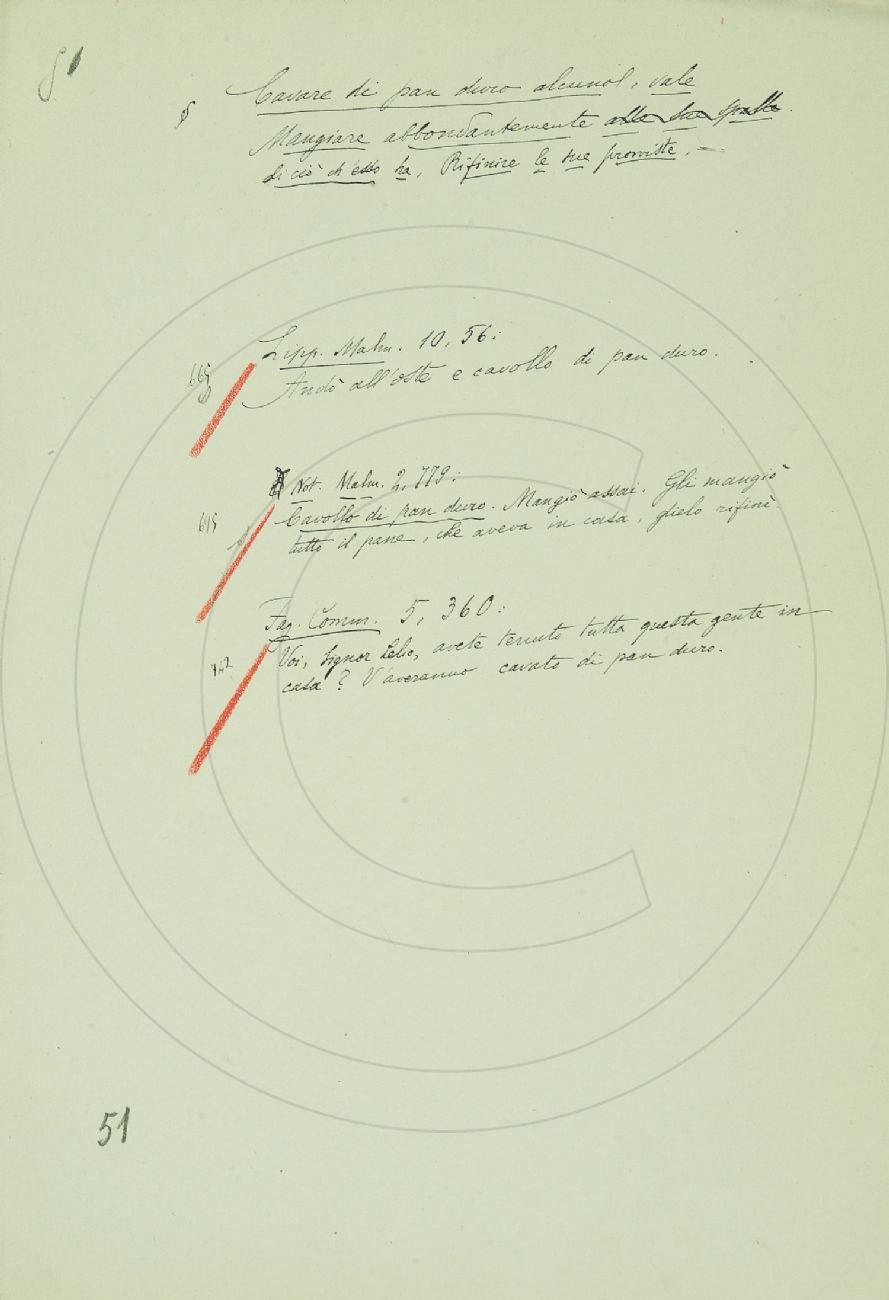 §
§ Cavare di pan duro alcuno, vale
Mangiare abbondantemente alle sue spalle
di ciò ch'esso ha, Rifinire le sue provviste. —
Lipp. Malm. 10, 56:
665
Andò all'oste e cavollo di pan duro.
Not. Malm. 2, 779:
695
Cavollo di pan duro. Mangiò assai. Gli mangiò
tutto il pane, che aveva in casa, glielo rifinì.
Fag. Comm. 5, 360:
Voi, Signor Lelio, avete tenuto tutta questa gente in
casa? V'averanno cavato di pan duro.
51